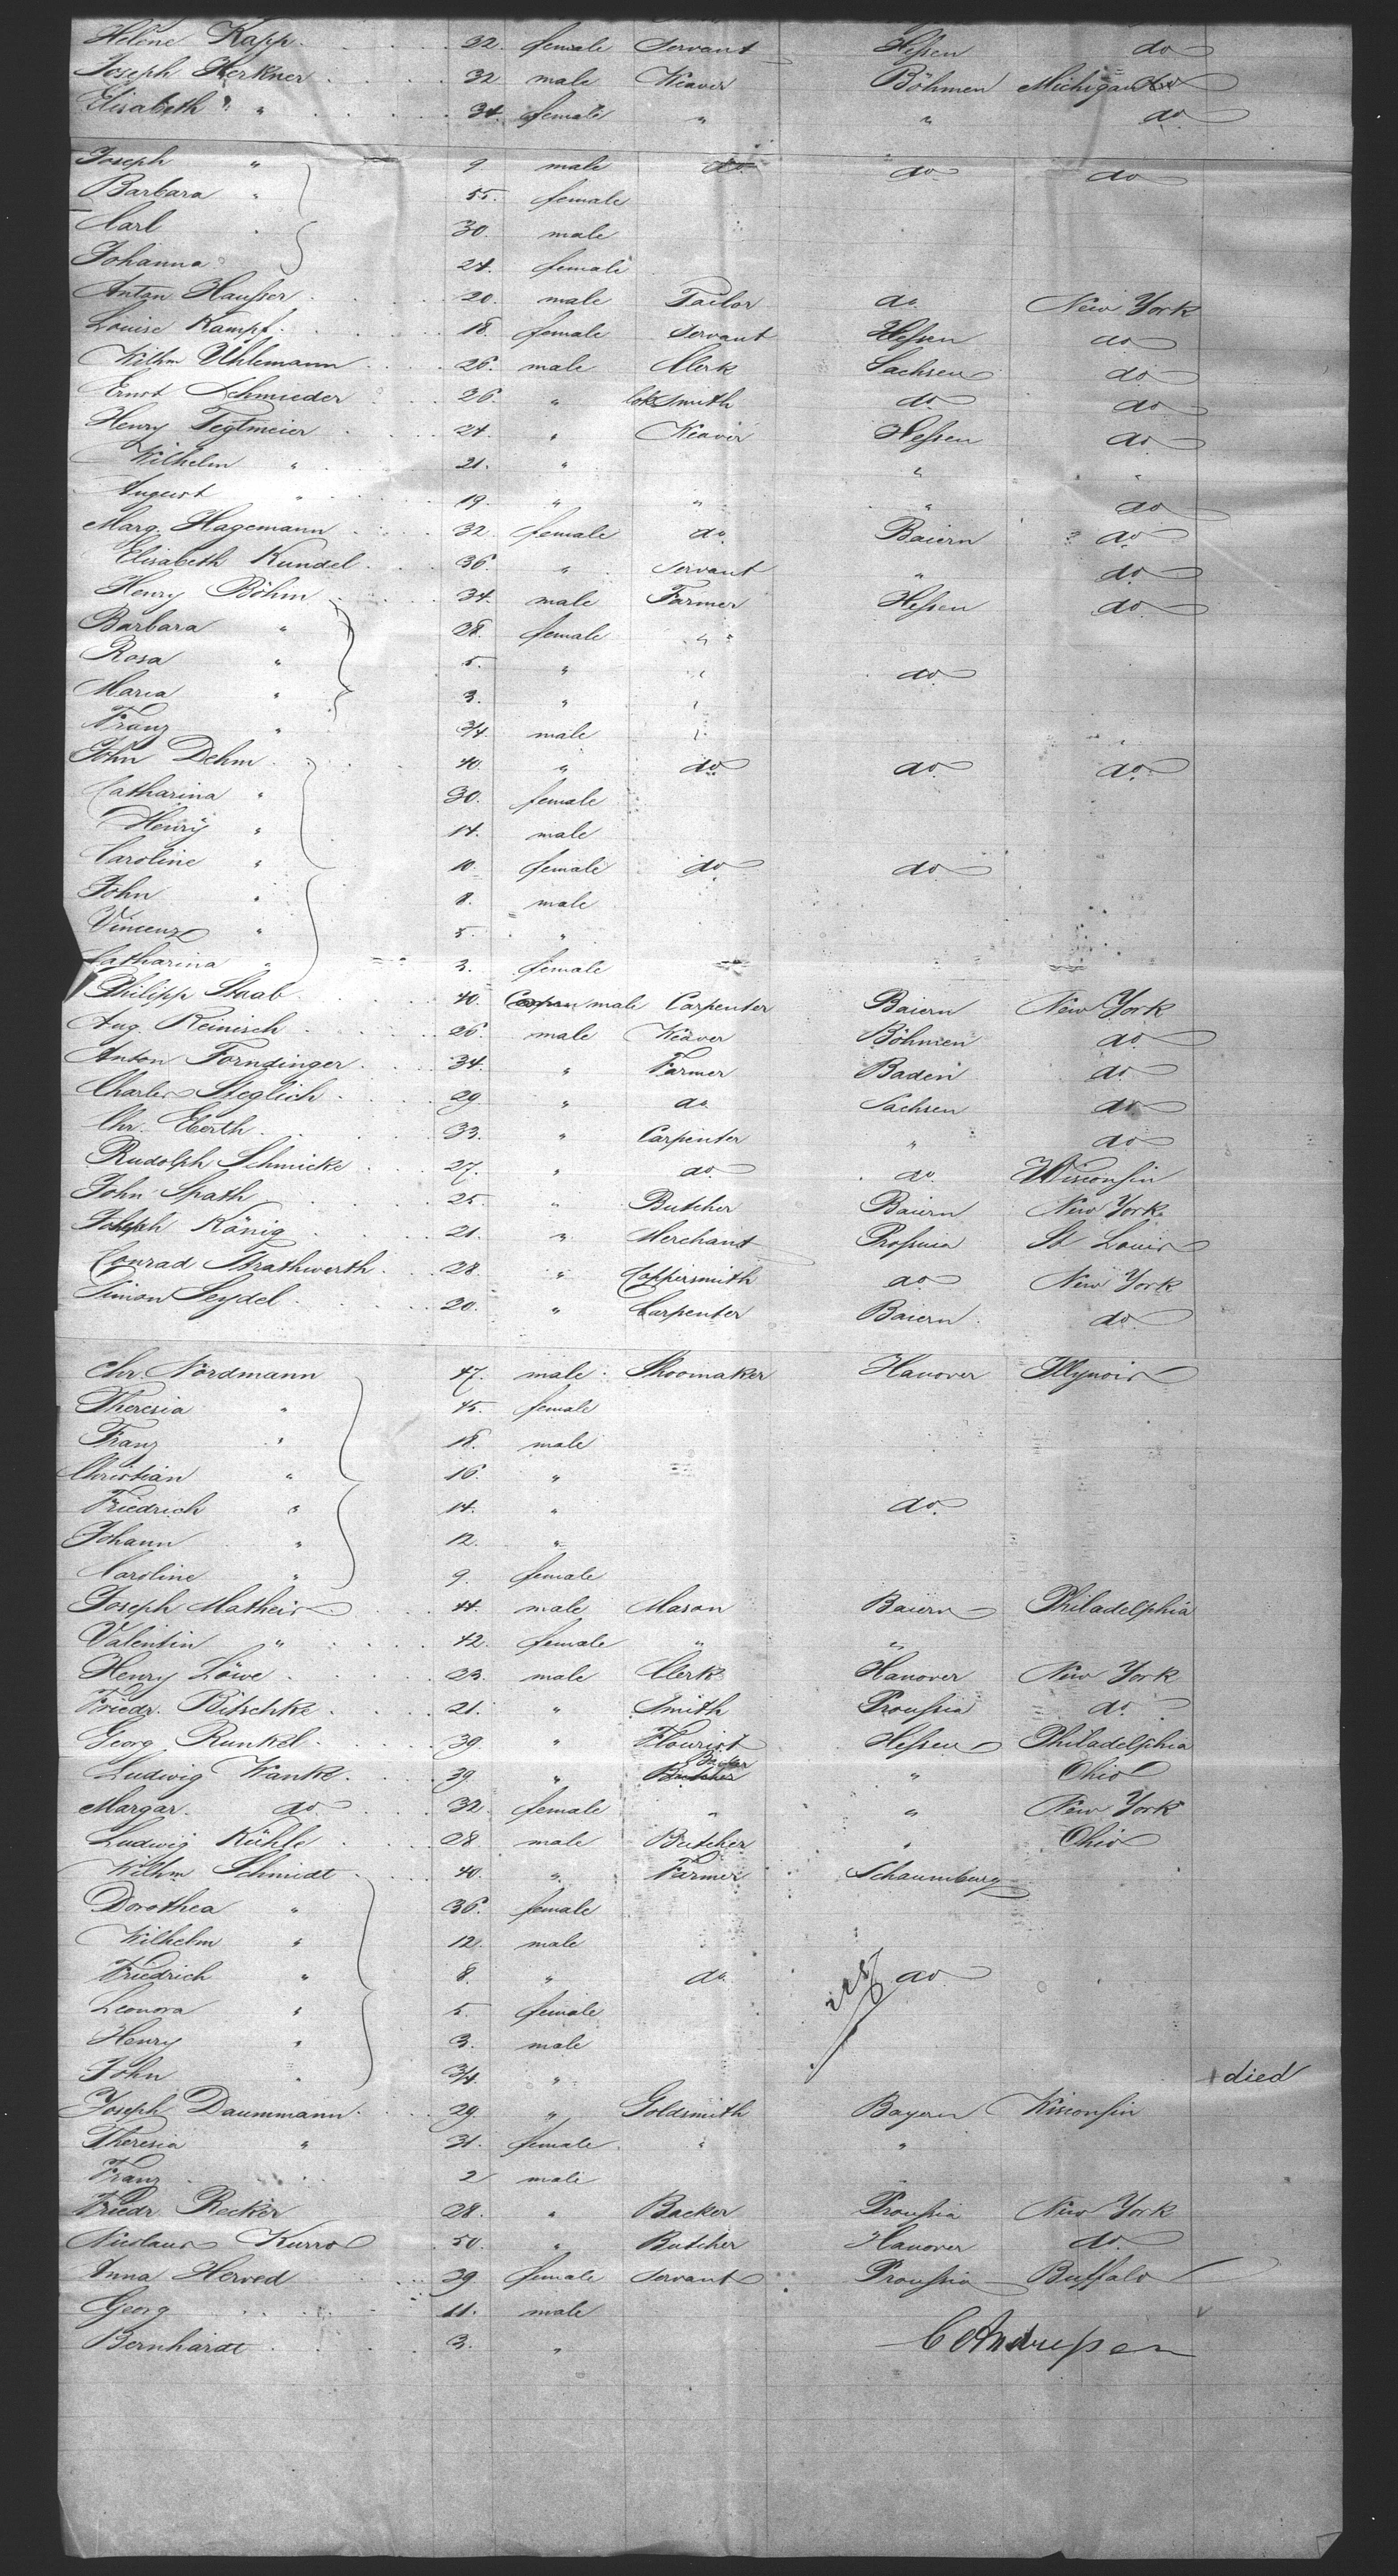 Helene Kapp 32. female Servant Hessen do
Joseph Herkner 32 male Weaver Böhmen Michigan do
Elisabeth " 34. female " " do
Joseph " 9 male do do do
Barbara " 55. female
Carl " 30. male
Johanna 24. female
Anton Hausser 20. male Tailor do New York
Louise Kampf 18. female Servant Hessen do
Wilhm Uhlemann 26. male Clerk Sachsen do
Ernst Schmieder 26. " lokSmith do do
Henry Tegtmeier 24. " Weaver Hessen do
Wilhelm " 21. " " "
August " 19. " " " do
Marg. Hagemann 32. female do Baiern do
Elisabeth Kundel 36. " Servant " do
Henry Böhm 34. male Farmer Hessen do
Barbara " 28. female "
Rosa " 5. " " do
Maria " 3. " "
Franz " 3/4. male "
John Dehm 40. " do do do
Catharina " 30. female
Henry " 14. male
Caroline " 10. female do do
John " 8. male
Vincenz " 5. "
Catharina " 3. female
Philipp Staab 40. male Carpenter Baiern New York
Aug. Reinisch 26. male Weaver Böhmen do
Anton Forndinger 34. " Farmer Baden do
Charles Steglich 29 " do Sachsen do
Chr. Eberth 33. " Carpenter " do
Rudolph Schmicke 27. " do do Wisconsin
John Spath 25 " Butcher Baiern New York
Joseph König 21. " Merchant Prossuia St Louis
Conrad Strathwerth 28 " Coppersmith do New York
Simon Seydel 20. " Carpenter Baiern do
Chr. Nordmann 47. male Shoomaker Hanover Illynois
Theresia " 45. female
Franz " 18. male
Christian " 16. "
Friedrich " 14. " do
Johann " 12. "
Caroline " 9. female
Joseph Matheis 44. male Mason Baiern Philadelphia
Valentin " 42. female " "
Henry Löwe 23. male Clerk Hanover New York
Friedr. Bitschke 21. " Smith Proussia do
Georg Runkel 39. " Flourist Hessen Philadelphia
Ludwig Wanke 39 " Butcher " Ohio
Margar. do 32. female " " New York
Ludwig Kühle 28 male Butcher " Ohio
Wilhm Schmidt 40. " Farmer Schaumburg
Dorothea " 36. female
Wilhelm " 12. male
Friedrich " 8. " do do
Leonora " 5. female
Henry " 3. male
John " 3/4. " died
Joseph Daummann 29 " Goldsmith Bayern Wisconsin
Theresia " 31. female " "
Franz 2 male
Friedr Recker 28. " Backer Proussia New York
Nicolaus Kurro 50. " Butcher Hanover do
Anna Herved 39 female Servant Proussia Buffalo
Georg 11. male
Bernhardt 3. "
C Andressen